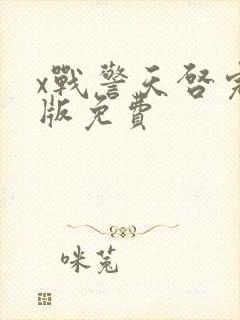 x戰警天啓完
版免費
咪莵